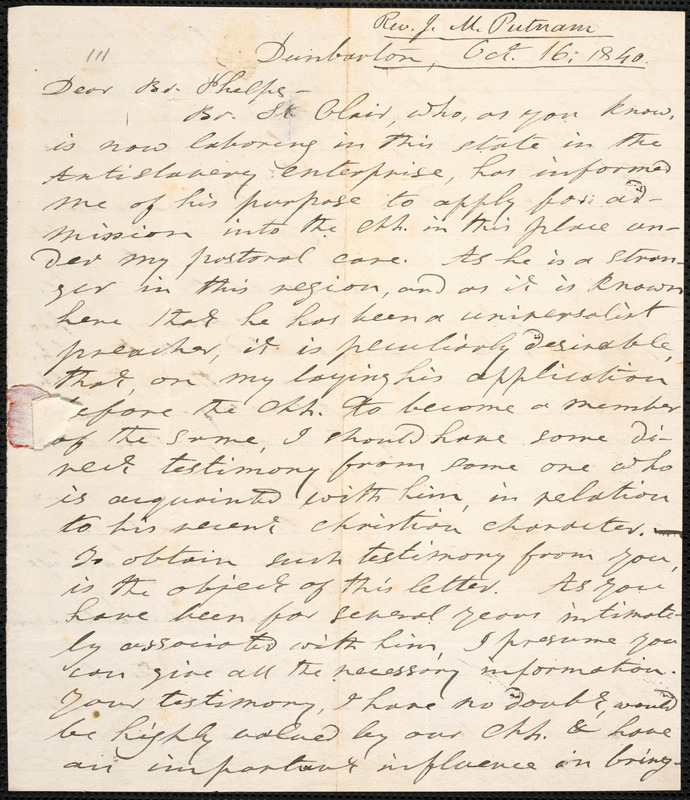 Rev. J. M. Putnam
111
Dunbarton, Oct. 16, 1840.
Dear Br. Phelps-
Br. St Clair, who, as you know,
is now laboring in this state in the
Antislavery enterprise, has informed
me of his purpose to apply for ad-
mission into the Chh. in this place un-
der my pastoral care. As he is a stran-
ger in this region, and as it is known
here that he has been a universalist
preacher, it is peculiarly desirable,
that, on my laying his application
before the Chh. to become a member
of the same, I should have some di-
rect testimony from some one who
is acquainted with him, in relation
to his recent Christian character. —
To obtain such testimony from you,
is the object of this letter. As you
have been for several years intimate-
ly associated with him, I presume you
can give all the necessary information.
Your testimony, I have no doubt, would
be highly valued by our Chh. & have
an important influence in bring-